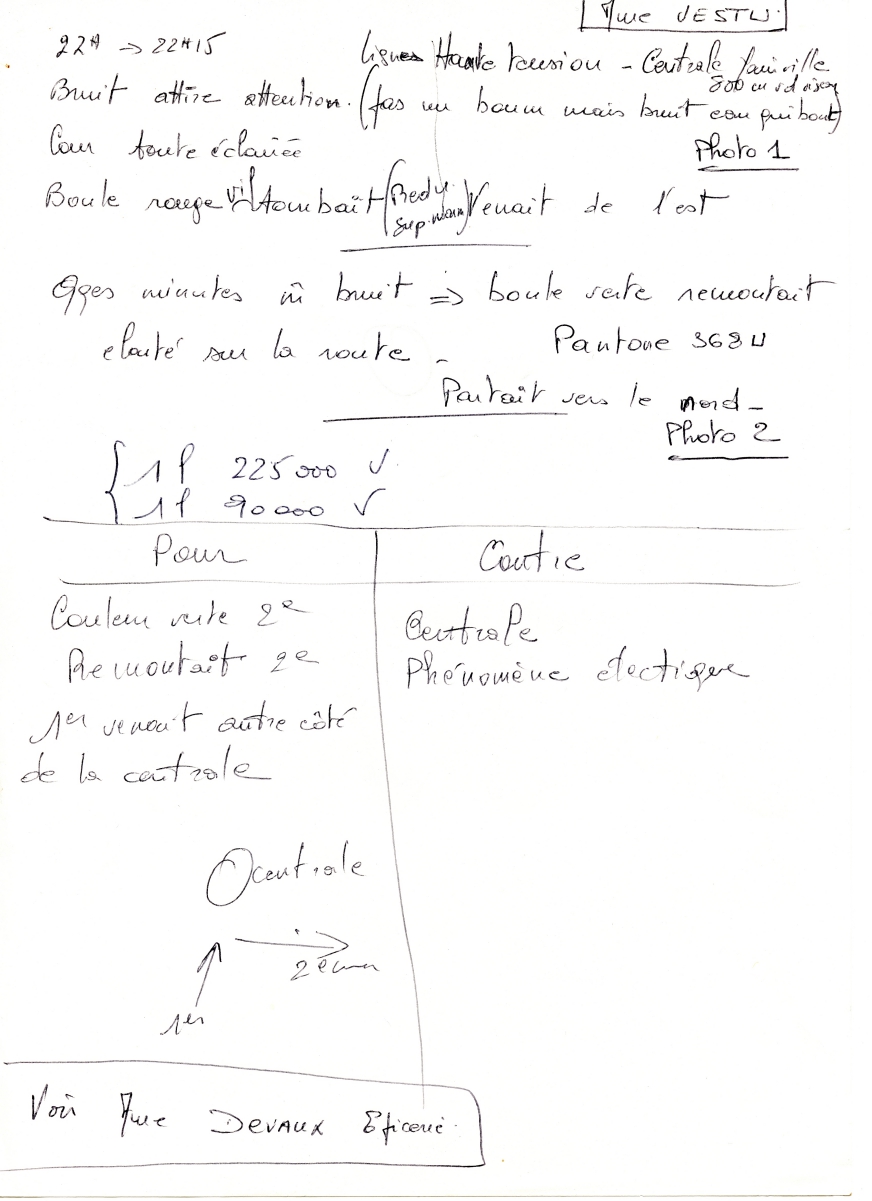 Mme VESTU
22H → 22H15
Lignes Haute tension - Centrale
800 m
Bruit attire attention. (pas un boum mais bruit eau qui bout)
Cour toute éclairée
Photo 1
Boule rouge tombait (Redy Venait de l'est
Qqes minutes m̂ bruit ⇒ boule verte remontait
clarté sur la route -
Pantone 368 U
Partait vers le nord -
Photo 2
1 P 225 000 V
1 P 90 000 V
Pour
Contre
Couleur verte 2e
Remontait 2e
1er venait autre côté
de la centrale
Centrale
Phénomène électrique
centrale
2ème
1er
Voir Mme DEVAUX Epicerie.